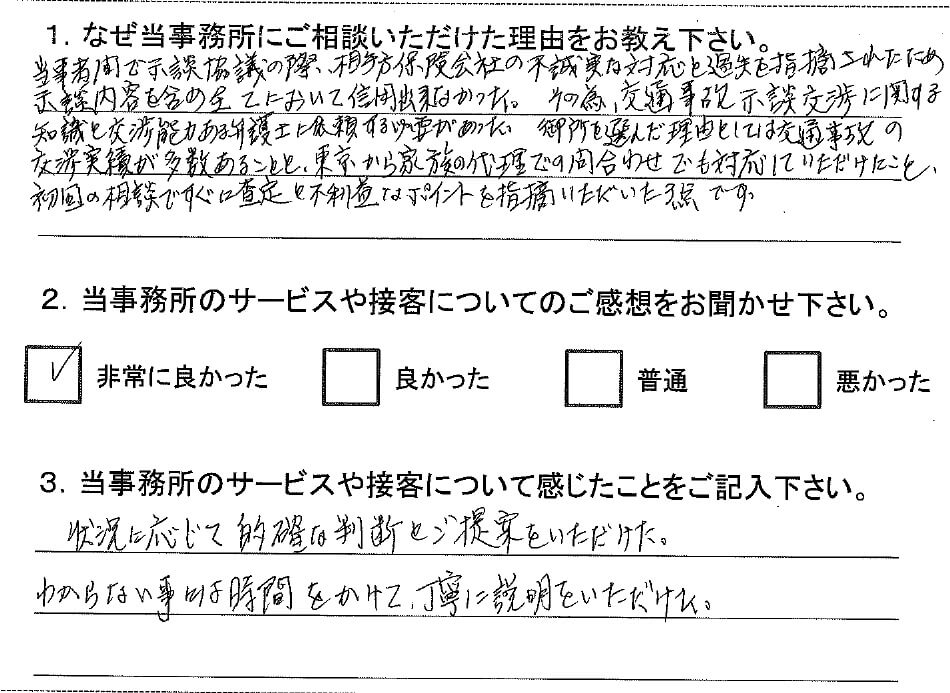 1. なぜ当事務所にご相談いただけた理由をお教え下さい。
当事者間で示談協議の際、相手方保険会社の不誠実な対応と過失を指摘されたため
示談内容を含め全てにおいて信用出来なかった。その為、交通事故示談交渉に関する
知識と交渉能力ある弁護士に依頼する必要があった。御所を選んだ理由としては交通事故の
交渉実績が多数あることと、東京から家族の代理での問合わせでも対応していただけたこと、
初回の相談ですぐに査定と不利益なポイントを指摘いただいた点です。
2. 当事務所のサービスや接客についてのご感想をお聞かせ下さい。
非常に良かった 良かった 普通 悪かった
3. 当事務所のサービスや接客について感じたことをご記入下さい。
状況に応じて的確な判断とご提案をいただけた。
わからない事は時間をかけて、丁寧に説明をいただけた。